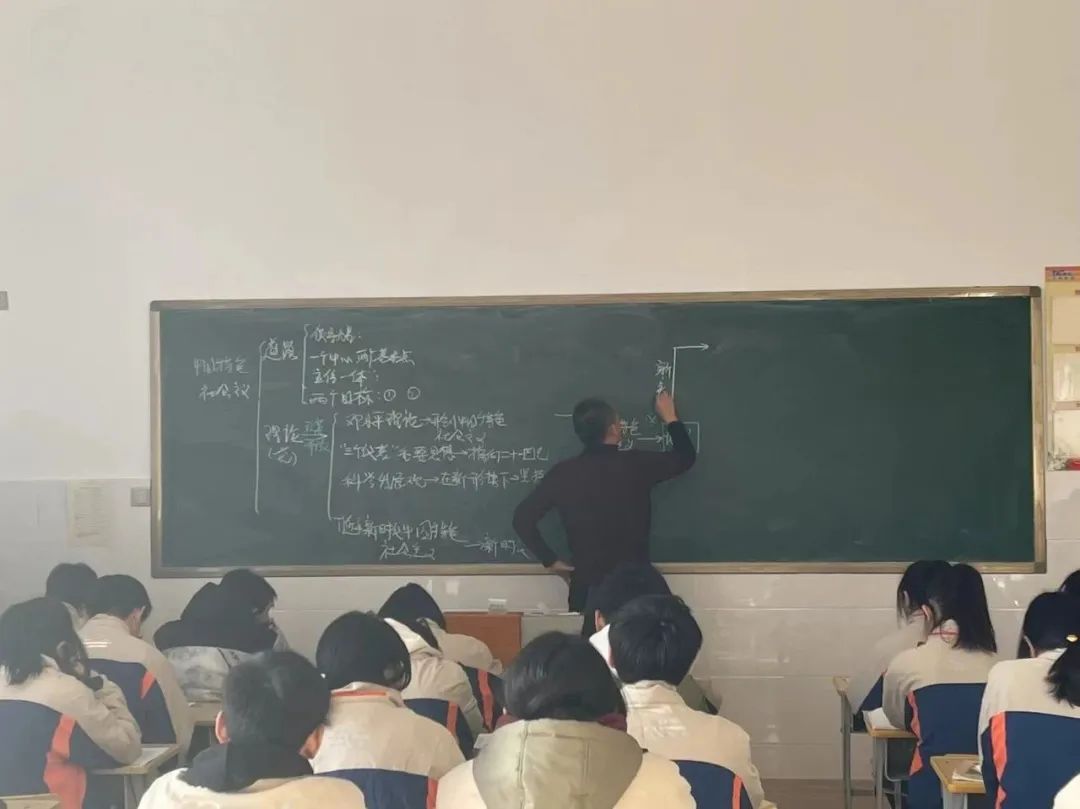 中国特色
社会主义
道路
领导力量：
一个中心 两个基本点
五位一体：
两个目标：① ②
理论
邓小平理论→形成中国特色
社会主义
"三个代表"重要思想→推向二十一世纪
科学发展观→在新形势下→坚持
新时代中国特色
社会主义
新时代
特色
新